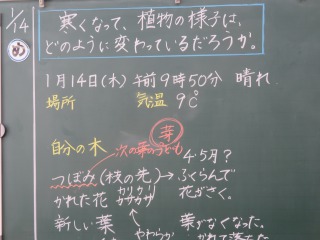 1/14
め
寒くなって、植物の様子は、
どのように変わっているだろうか。
1月14日(木)午前9時50分 晴れ
場所 気温 9℃
芽
自分の木 次の葉の子ども 4.5月?
つぼみ(枝の先)→ふくらんで
かれた花 カリカリ 花がさく。
カサカサ
新しい葉 葉がなくなった。
やわらか